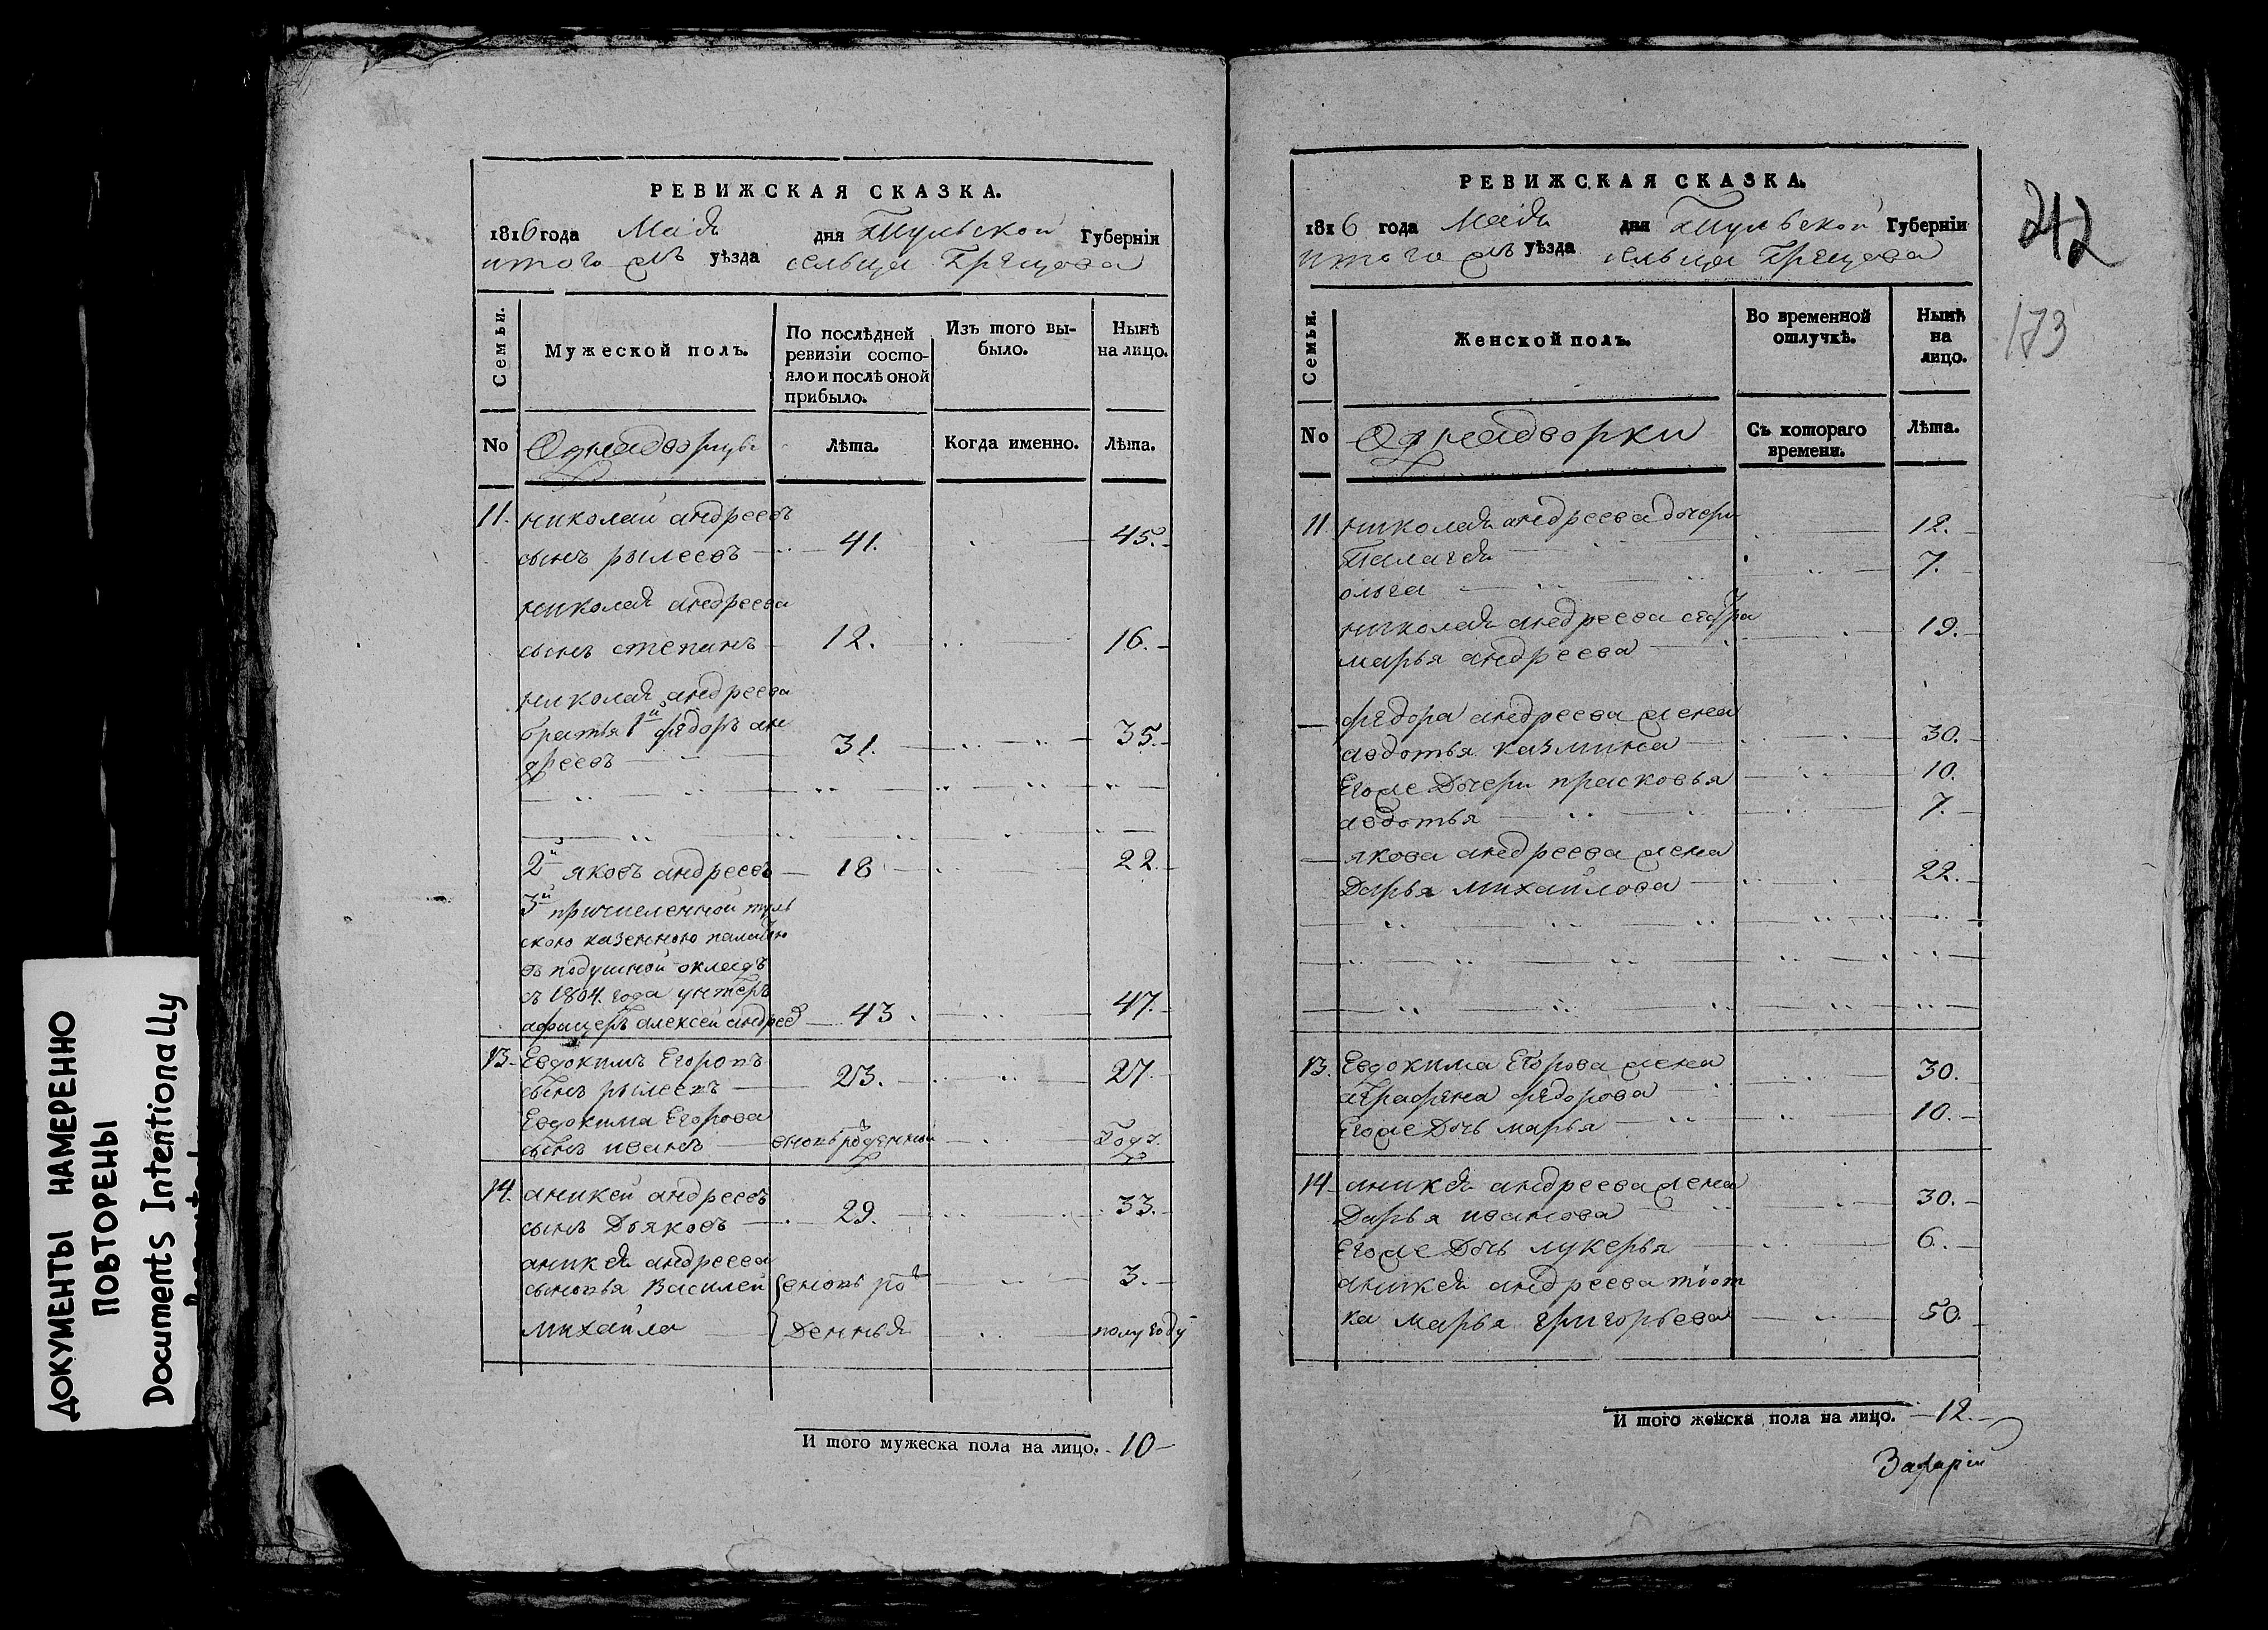 ДОКУМЕНТЫ НАМЕРЕННО
ПОВТОРЕНЫ
Documents Intentionally
РЕВИЖСКАЯ СКАЗКА.
1816 года Маія дня Тульской Губерніи
итого жъ уѣзда сельца Грецова
Семьи.
Мужеской полъ.
По послѣдней
ревизіи состо-
яло и послѣ оной
прибыло.
Изъ того вы-
было.
Нынѣ
на лицо.
No
Однадворцы
Лѣта.
Когда именно.
Лѣта.
11. николай андреевъ
сынъ рылеевъ 41. 45.
николая андреева
сынъ степанъ 12. 16.
николая андреева
братья 1й федоръ ан
дреевъ 31. 35.
2й яковъ андреевъ 18 22.
3й причисленной туль
скою казенною палатою
въ подушной окладъ
съ 1804. года унтеръ
афицеръ алексей андреев 43. 47.
13. Евдокимъ Егоровъ
сынъ рылеевъ 23. 27.
Евдокима Егорова
сынъ иванъ вновьрожденной Годъ.
14. аникей андреевъ
сынъ Дьяковъ 29. 33.
аникея андреева
сыновья Василей вновь рож 3.
михайла Денныя полугоду
И того мужеска пола на лицо. 10
РЕВИЖСКАЯ СКАЗКА.
1816 года Маія дня Тульской Губерніи
итого жъ уѣзда сельца Грецова
Семьи.
Женской полъ.
Во временной
отлучкѣ.
Нынѣ
на
лицо.
No
Однадворки
Съ котораго
времени.
Лѣта.
11. николая андреева дочери
Палагея 12.
ольга 7.
николая андреева сестра
марья андреева 19.
федора андреева жена
авдотья казмина 30.
Егоже Дочери прасковья 10.
авдотья 7.
якова андреева жена
Дарья михайлова 22.
13. Евдокима Егорова жена
аграфена федорова 30.
Егоже Дочь марья 10.
14. аникея андреева жена
Дарья иванова 30.
Егоже Дочь лукерья 6.
аникея андреева тіот
ка марья григорьева 50.
И того женска пола на лицо. 12.
Захарій
242
173